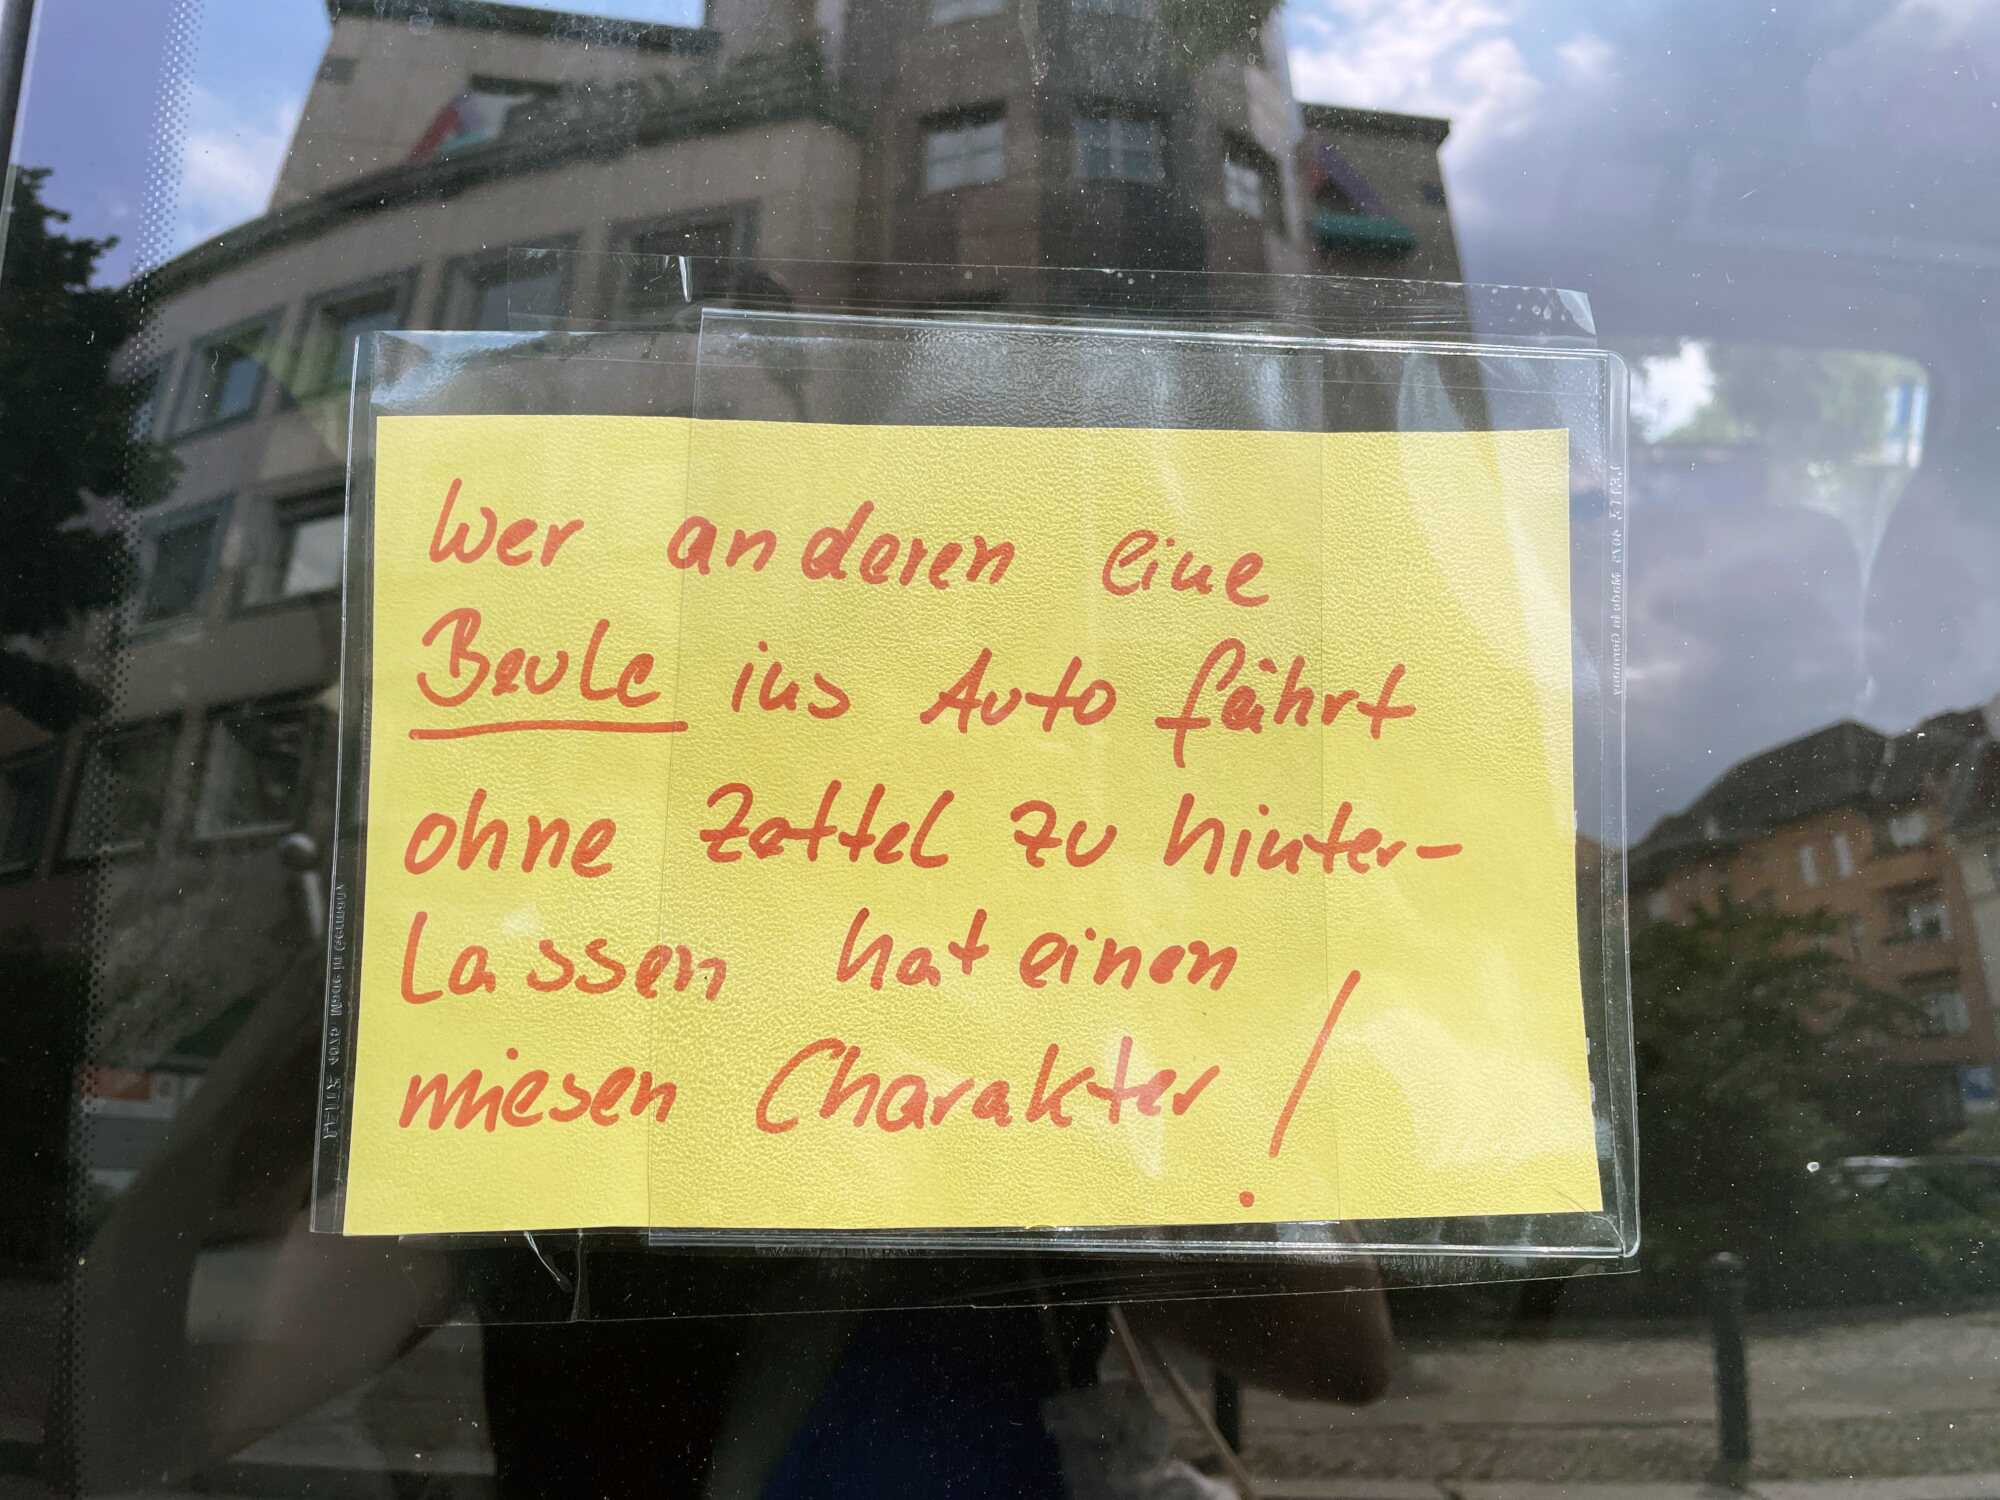 Wer anderen eine
Beule ins Auto fährt
ohne Zettel zu hinter-
lassen hat einen
miesen Charakter!